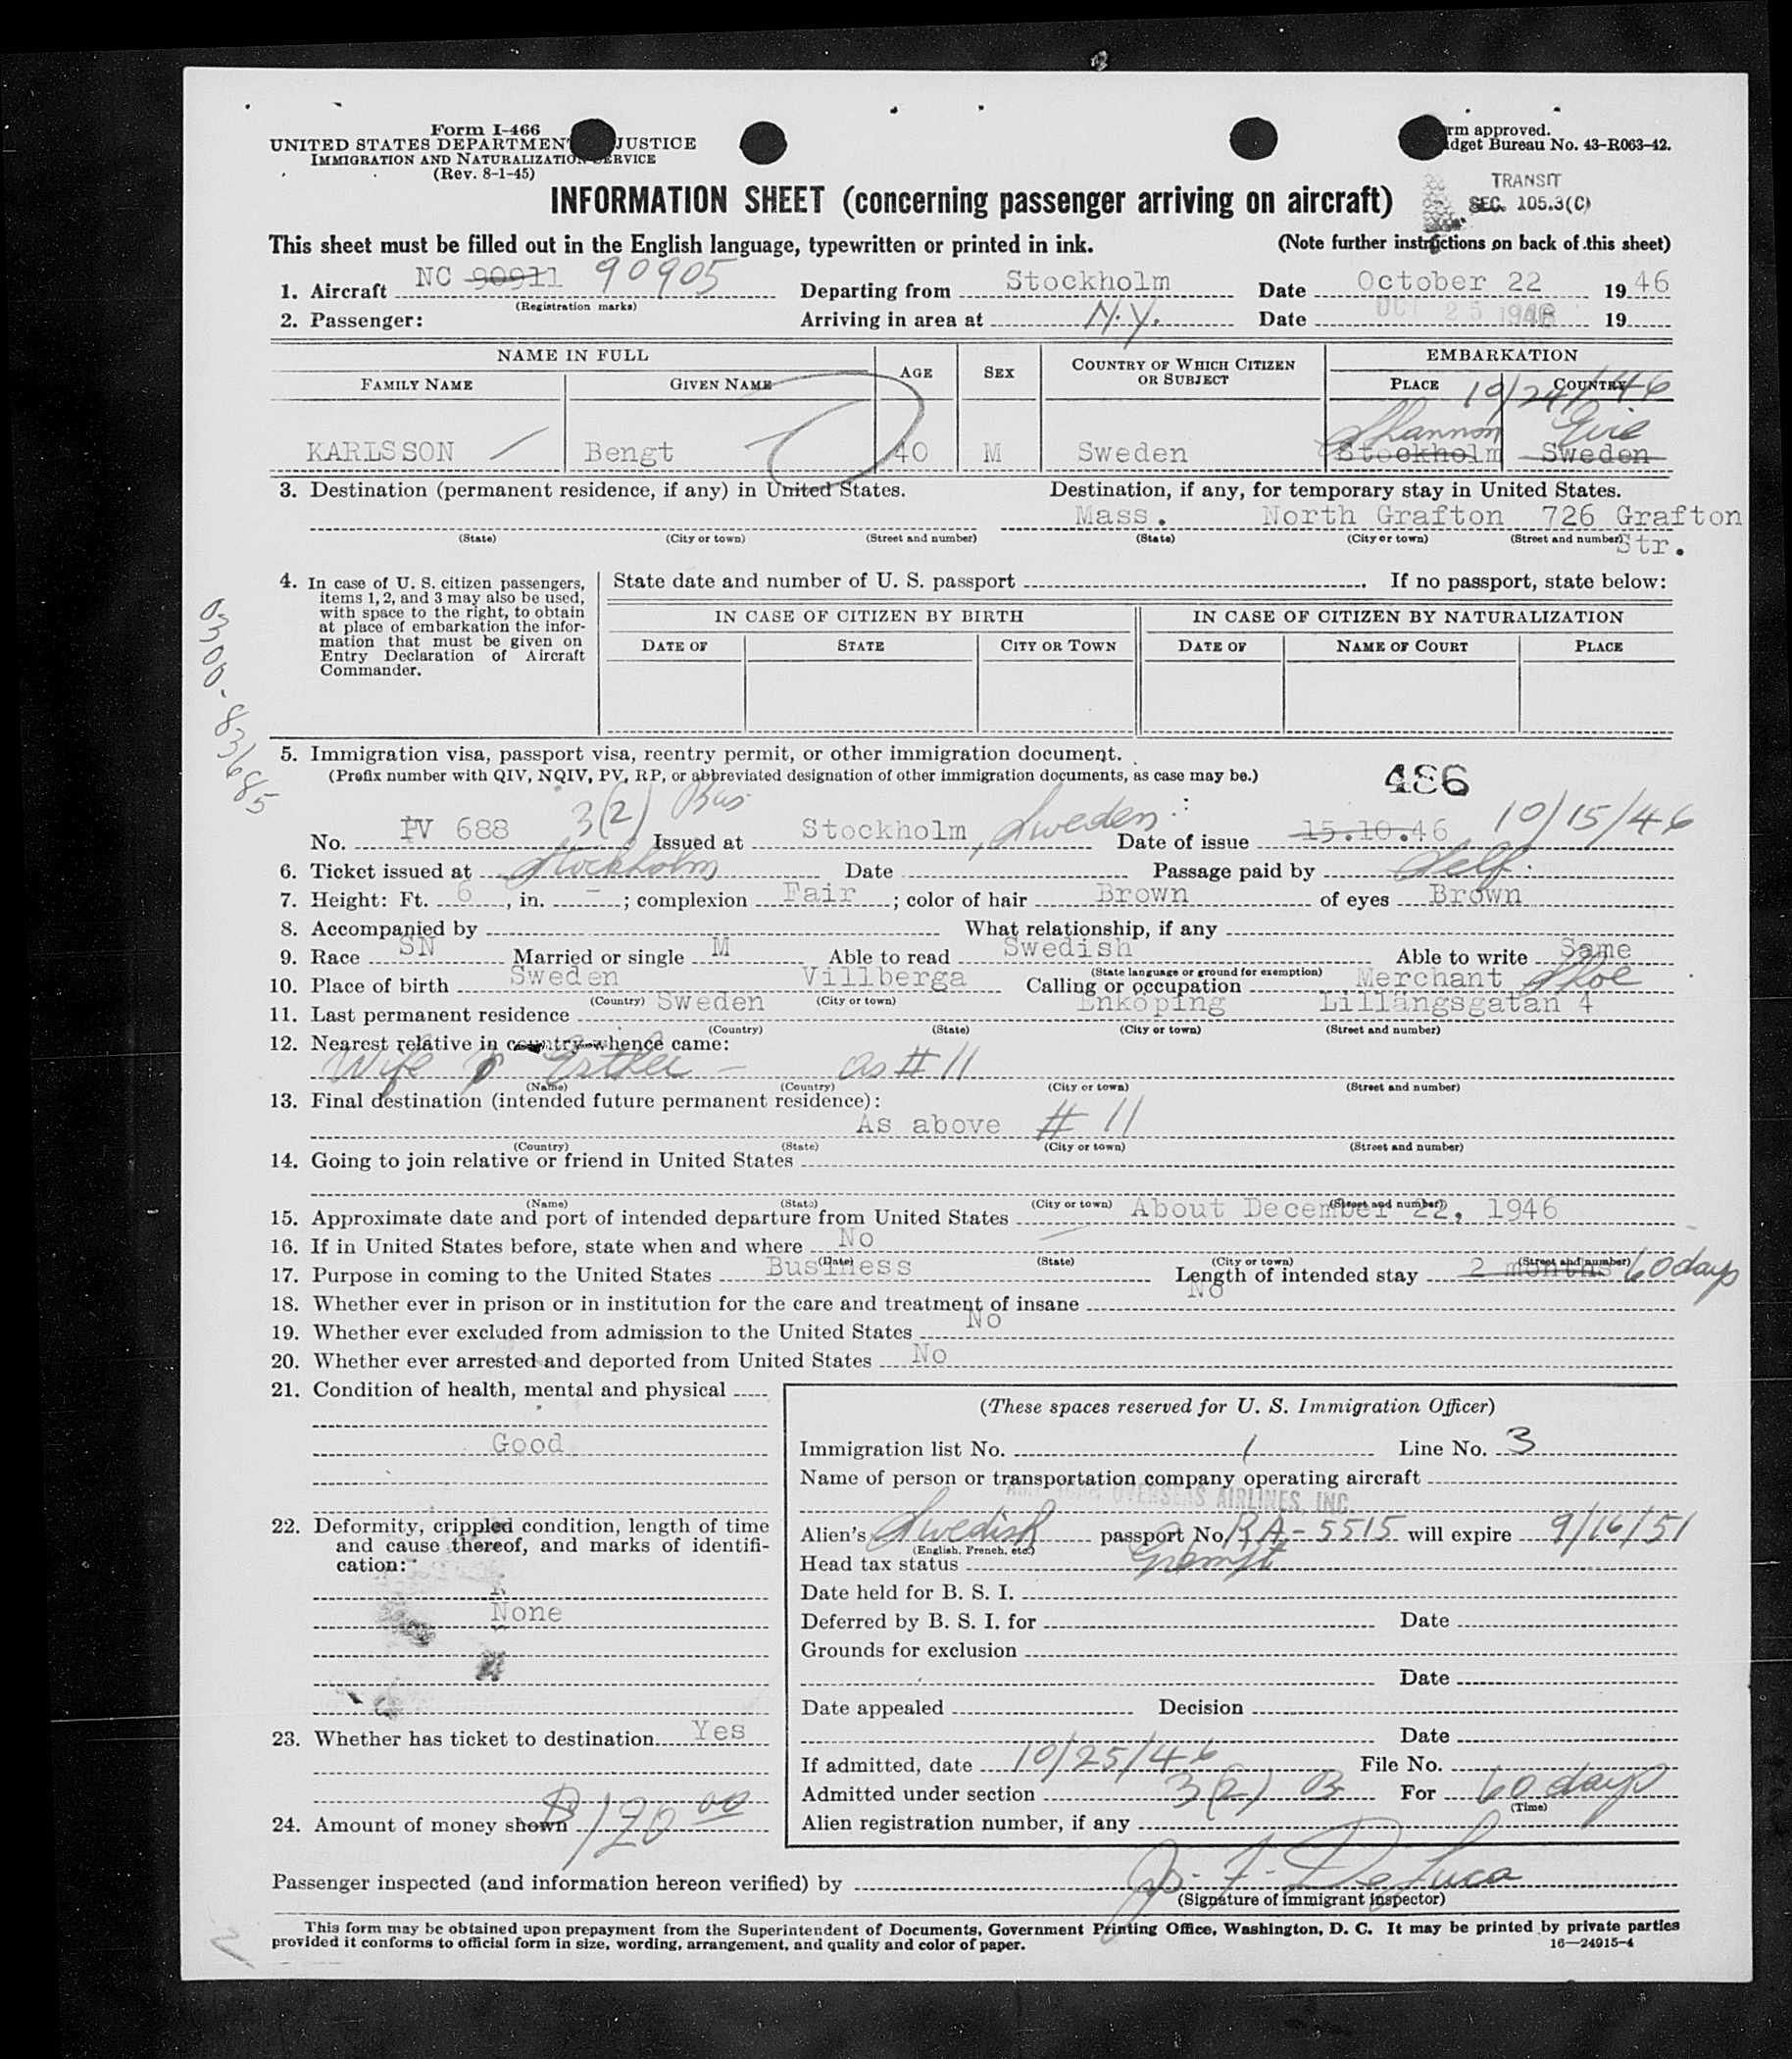 Form I-466
UNITED STATES DEPARTMENT JUSTICE
IMMIGRATION AND NATURALIZATION SERVICE
(Rev. 8-1-45)
rm approved.
dget Bureau No. 43-R063-42.
TRANSIT
SEC. 105.3(C)
INFORMATION SHEET (concerning passenger arriving on aircraft)
This sheet must be filled out in the English language, typewritten or printed in ink. (Note further instructions on back of this sheet)
1. Aircraft NC 90911 90905 Departing from Stockholm Date October 22 1946
(Registration marks)
2. Passenger: Arriving in area at N.Y. Date OCT 25 1946 19
NAME IN FULL AGE SEX COUNTRY OF WHICH CITIZEN OR SUBJECT EMBARKATION
FAMILY NAME GIVEN NAME PLACE COUNTRY
10/24/46
Shannon Eire
KARLSSON Bengt 40 M Sweden Stockholm Sweden
3. Destination (permanent residence, if any) in United States. Destination, if any, for temporary stay in United States.
Mass. North Grafton 726 Grafton Str.
(State) (City or town) (Street and number) (State) (City or town) (Street and number)
4. In case of U. S. citizen passengers, items 1, 2, and 3 may also be used, with space to the right, to obtain at place of embarkation the information that must be given on Entry Declaration of Aircraft Commander.
State date and number of U. S. passport If no passport, state below:
IN CASE OF CITIZEN BY BIRTH IN CASE OF CITIZEN BY NATURALIZATION
DATE OF STATE CITY OR TOWN DATE OF NAME OF COURT PLACE
0300-83685
5. Immigration visa, passport visa, reentry permit, or other immigration document.
(Prefix number with QIV, NQIV, PV, RP, or abbreviated designation of other immigration documents, as case may be.)
486
No. PV 688 3(2) Bus Issued at Stockholm, Sweden Date of issue 15.10.46 10/15/46
6. Ticket issued at Stockholm Date Passage paid by Self.
7. Height: Ft. 6, in. – ; complexion Fair ; color of hair Brown of eyes Brown
8. Accompanied by What relationship, if any
9. Race SN Married or single M Able to read Swedish Able to write Same
(State language or ground for exemption)
10. Place of birth Sweden Villberga Calling or occupation Merchant Shoe
(Country) (City or town)
11. Last permanent residence Sweden Enköping Lillängsgatan 4
(Country) (State) (City or town) (Street and number)
12. Nearest relative in country whence came:
Wife Esther – as # 11
(Name) (Country) (City or town) (Street and number)
13. Final destination (intended future permanent residence):
As above # 11
(Country) (State) (City or town) (Street and number)
14. Going to join relative or friend in United States
(Name) (State) (City or town) (Street and number)
15. Approximate date and port of intended departure from United States About December 22, 1946
16. If in United States before, state when and where No
(Date) (State) (City or town) (Street and number)
17. Purpose in coming to the United States Business Length of intended stay 2 months 60 days
18. Whether ever in prison or in institution for the care and treatment of insane No
19. Whether ever excluded from admission to the United States No
20. Whether ever arrested and deported from United States No
21. Condition of health, mental and physical
Good
22. Deformity, crippled condition, length of time and cause thereof, and marks of identification:
None
23. Whether has ticket to destination Yes
24. Amount of money shown $120 00
(These spaces reserved for U. S. Immigration Officer)
Immigration list No. 1 Line No. 3
Name of person or transportation company operating aircraft
OVERSEAS AIRLINES, INC
Alien's Swedish passport No. RA-5515 will expire 9/16/51
(English, French, etc.)
Head tax status Exempt
Date held for B. S. I.
Deferred by B. S. I. for Date
Grounds for exclusion
Date
Date appealed Decision
Date
If admitted, date 10/25/46 File No.
Admitted under section 3(2) B For 60 days
(Time)
Alien registration number, if any
Passenger inspected (and information hereon verified) by J. F. DeLuca
(Signature of immigrant inspector)
This form may be obtained upon prepayment from the Superintendent of Documents, Government Printing Office, Washington, D. C. It may be printed by private parties
provided it conforms to official form in size, wording, arrangement, and quality and color of paper. 16—24915-4